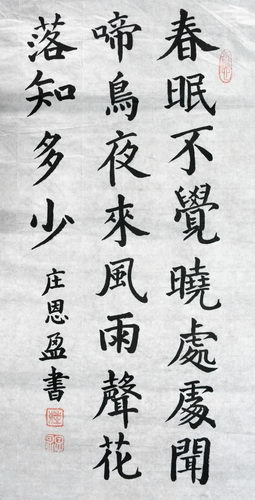 春眠不覺曉處處聞
啼鳥夜來風雨聲花
落知多少
庄恩盈書